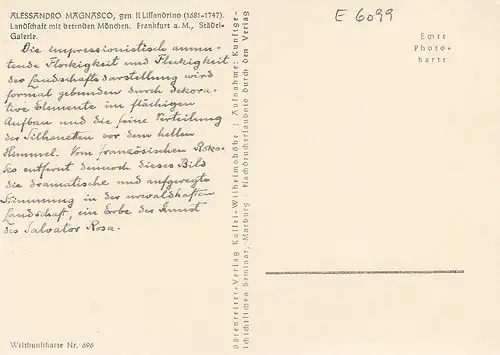 ALESSANDRO MAGNASCO, gen. Il Lissandrino (1681-1747).
Landschaft mit betenden Mönchen. Frankfurt a. M., Städel-
Galerie.
Die impressionistisch anmu-
tende Flockigkeit und Fleckigkeit
der Landschaftsdarstellung wird
formal gebunden durch dekora-
tive Elemente im flächigen
Aufbau und die feine Verteilung
der Silhouetten vor dem hellen
Himmel. Vom französischen Roko-
ko entfernt dennoch dieses Bild
die dramatische und aufgeregte
Stimmung in der urwaldhaften
Landschaft, ein Erbe der Kunst
des Salvator Rosa.
Weltkunstkarte Nr. 696
Bärenreiter-Verlag Kassel-Wilhelmshöhe / Aufnahme: Kunstge-
schichtliches Seminar, Marburg / Nachdruckerlaubnis durch den Verlag
E 6099
Echte
Photo-
karte